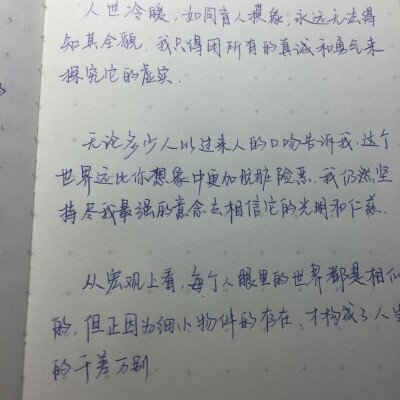 人世冷暖，如同盲人摸象，永远无法得
知其全貌，我只得用所有的真诚和勇气来
探究它的虚实．
无论多少人以过来人的口吻告诉我，这个
世界远比你想象中更加肮脏险恶，我仍然坚
持尽我最强的意念去相信它的光明和仁慈．
从宏观上看，每个人眼里的世界都是相似
的，但正因为细小物件的存在，才构成了人生
的千差万别．